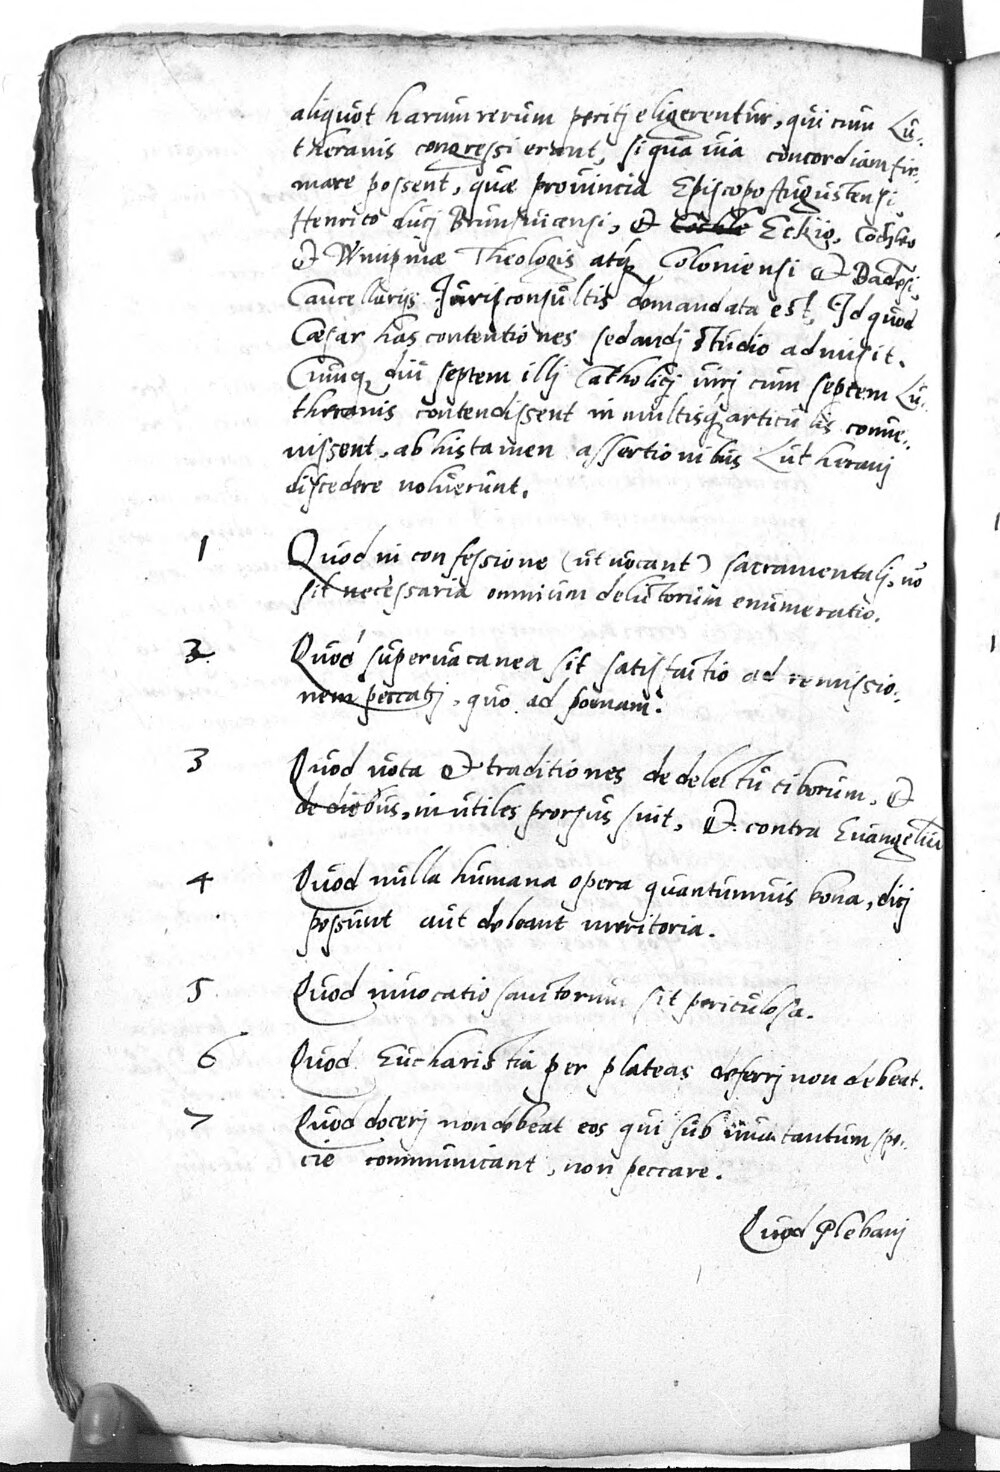 aliquot harum rerum peritj eligerentur, qui cum Lu-
theranis congressi erant, si qua via concordiam fir-
mare possent, quæ provincia Episcopo Augustensi,
Henrico ducj Brunsuicensi, & Eckio, Cochleo
& Wimpinæ Theologis atq Coloniensi & Badesi,
Cancellarijs Jurisconsultis demandata est, Id quod
Cæsar has contentiones sedandj studio admisit.
Cumq diu septem illj Catholicj virj cum septem Lu-
theranis contendissent in multisq articulis conve-
nissent, ab his tamen assertionibus Lutheranj
discedere noluerunt.
1 Quod in confessione (ut vocant) sacramentalj, nō
sit necessaria omnium delictorum enumeratio.
2 Quod supervacanea sit satisfactio ad remissio-
nem peccatj, quo ad pœnam.
3 Quod vota & traditiones de delectu ciborum, &
de diebus, inutiles prorsus sint, & contra Evangeliū
4 Quod nulla humana opera quantumvis bona, dicj
possunt aut debeant meritoria.
5 Quod invocatio sanctorum sit periculosa.
6 Quod Eucharistia per plateas deferrj non debeat.
7 Quod docerj non debeat eos qui sub una tantum spe-
cie communicant, non peccare.
Quod Plebanj